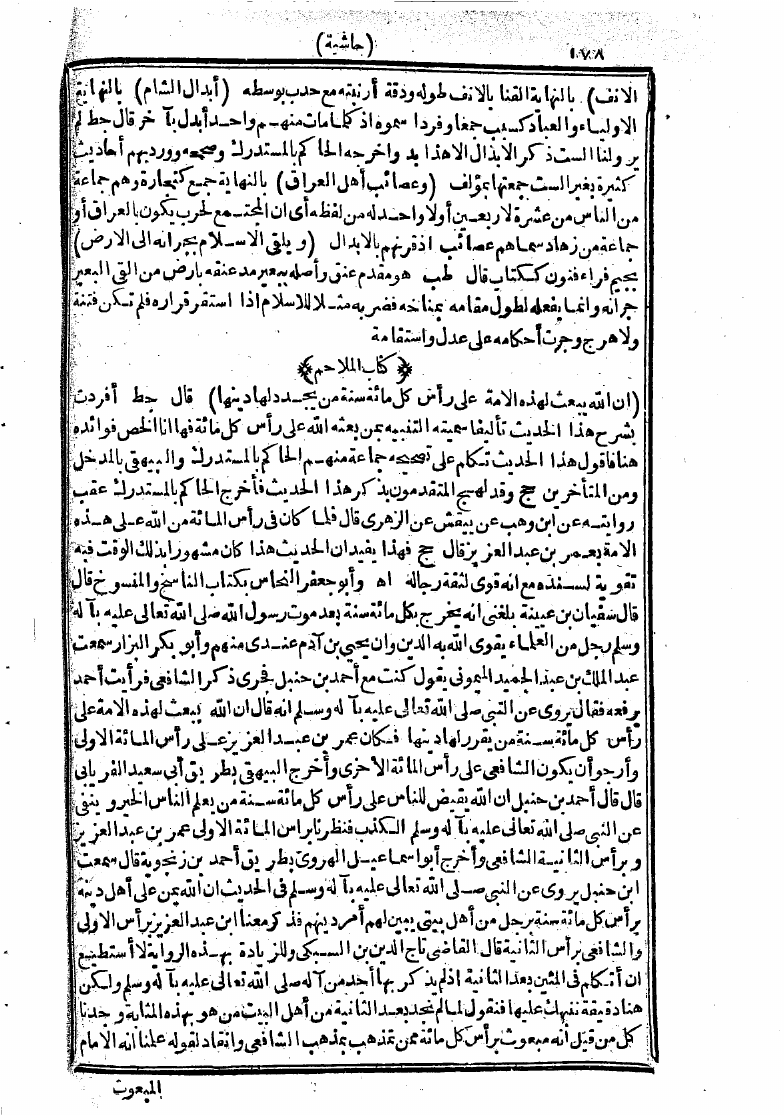 ١٧٨
(حاشية)
الانف) بالنهاية القنا بالانف طوله ودقة أرنبته مع حدب بوسطه (أبدال الشام) بالنهاية
الاولياء والعباد كسبب جمعا وفردا سموه اذ كلما مات منهم واحد أبدل بآخر قال حط لم
يرو لنا الست ذكر الابدال الا هذا بد واخرجه الحاكم بالمستدرك وصححه وورد بهم أحاديث
كثيرة بغير الست جمعتها بمؤلف (وعصائب أهل العراق) بالنهاية جمع كتجارة وهم جماعة
من الناس من عشرة لاربعين أولا واحد له من لفظه أى ان المجتمع لحرب يكون بالعراق أو
جماعة من زهاد سماهم عصائب اذ قرنهم بالابدال (ويلقى الاسلام بجرانه الى الارض)
بجيم فراء فنون ككتاب قال طب هو مقدم عنق وأصله ببعير مد عنقه بارض من القى البعير
جرانه وانما يفعله لطول مقامه بمناخه فضربه مثلا للاسلام اذا استقر قراره فلم تكن فتنة
ولا هرج وجرت أحكامه على عدل واستقامة
﴿كتاب الملاحم﴾
(ان الله يبعث لهذه الامة على رأس كل مائة سنة من يجدد لها دينها) قال حط أفردت
بشرح هذا الحديث تأليفا سميته التنبيه بمن يبعثه الله على رأس كل مائة فها انا ألخص فوائده
هنا فاقول هذا الحديث تكلم على تصحيحه جماعة منهم الحاكم بالمستدرك والبيهقى بالمدخل
ومن المتأخرين حج وقد لهج المتقدمون بذكر هذا الحديث فأخرج الحاكم بالمستدرك عقب
روايته عن ابن وهب عن يونس عن الزهرى قال فلما كان فى رأس المائة من الله على هذه
الامة بعمر بن عبد العزيز قال حج فهذا يفيد ان الحديث هذا كان مشهورا بذلك الوقت فيه
تقوية لسنده مع انه قوى لثقة رجاله اه وأبو جعفر النحاس بكتاب الناسخ والمنسوخ قال
قال سفيان بن عيينة بلغنى انه يخرج بكل مائة سنة بعد موت رسول الله صلى الله تعالى عليه بآله
وسلم رجل من العلماء يقوى الله به الدين وان يحيى بن آدم عندى منهم وأبو بكر البزار سمعت
عبد الملك بن عبد الحميد الميمونى يقول كنت مع أحمد بن حنبل فجرى ذكر الشافعى فرأيت أحمد
يرفعه فقال يروى عن النبى صلى الله تعالى عليه بآله وسلم انه قال ان الله يبعث لهذه الامة على
رأس كل مائة سنة من يقرر لها دينها فكان عمر بن عبد العزيز على رأس المائة الاولى
وأرجو أن يكون الشافعى على رأس المائة الأخرى وأخرج البيهقى بطريق أبى سعيد الفريابى
قال قال أحمد بن حنبل ان الله يقيض للناس على رأس كل مائة سنة من يعلم الناس الخير وينفى
عن النبى صلى الله تعالى عليه بآله وسلم الكذب فنظرنا برأس المائة الاولى عمر بن عبد العزيز
وبرأس الثانية الشافعى وأخرج أبو اسماعيل الهروى بطريق أحمد بن زنجوية قال سمعت
ابن حنبل يروى عن النبى صلى الله تعالى عليه بآله وسلم فى الحديث ان الله يمن على أهل دينه
برأس كل مائة سنة برجل من أهل بيتى يبين لهم أمر دينهم فذكر معنا ابن عبد العزيز برأس الاولى
والشافعى برأس الثانية قال القاضى تاج الدين بن السبكى وللزيادة بهذه الرواية لا أستطيع
ان أتكلم فى المئين بعد الثانية اذ لم يذكر بها أحد من آله صلى الله تعالى عليه بآله وسلم ولكن
هنا دقيقة ننبهك عليها فنقول لما لم نجد بعد الثانية من أهل البيت من هو بهذه المثابة وجدنا
كل من قيل أنه مبعوث برأس كل مائة ممن تمذهب بمذهب الشافعى وانقاد لقوله علمنا انه الامام
المبعوث